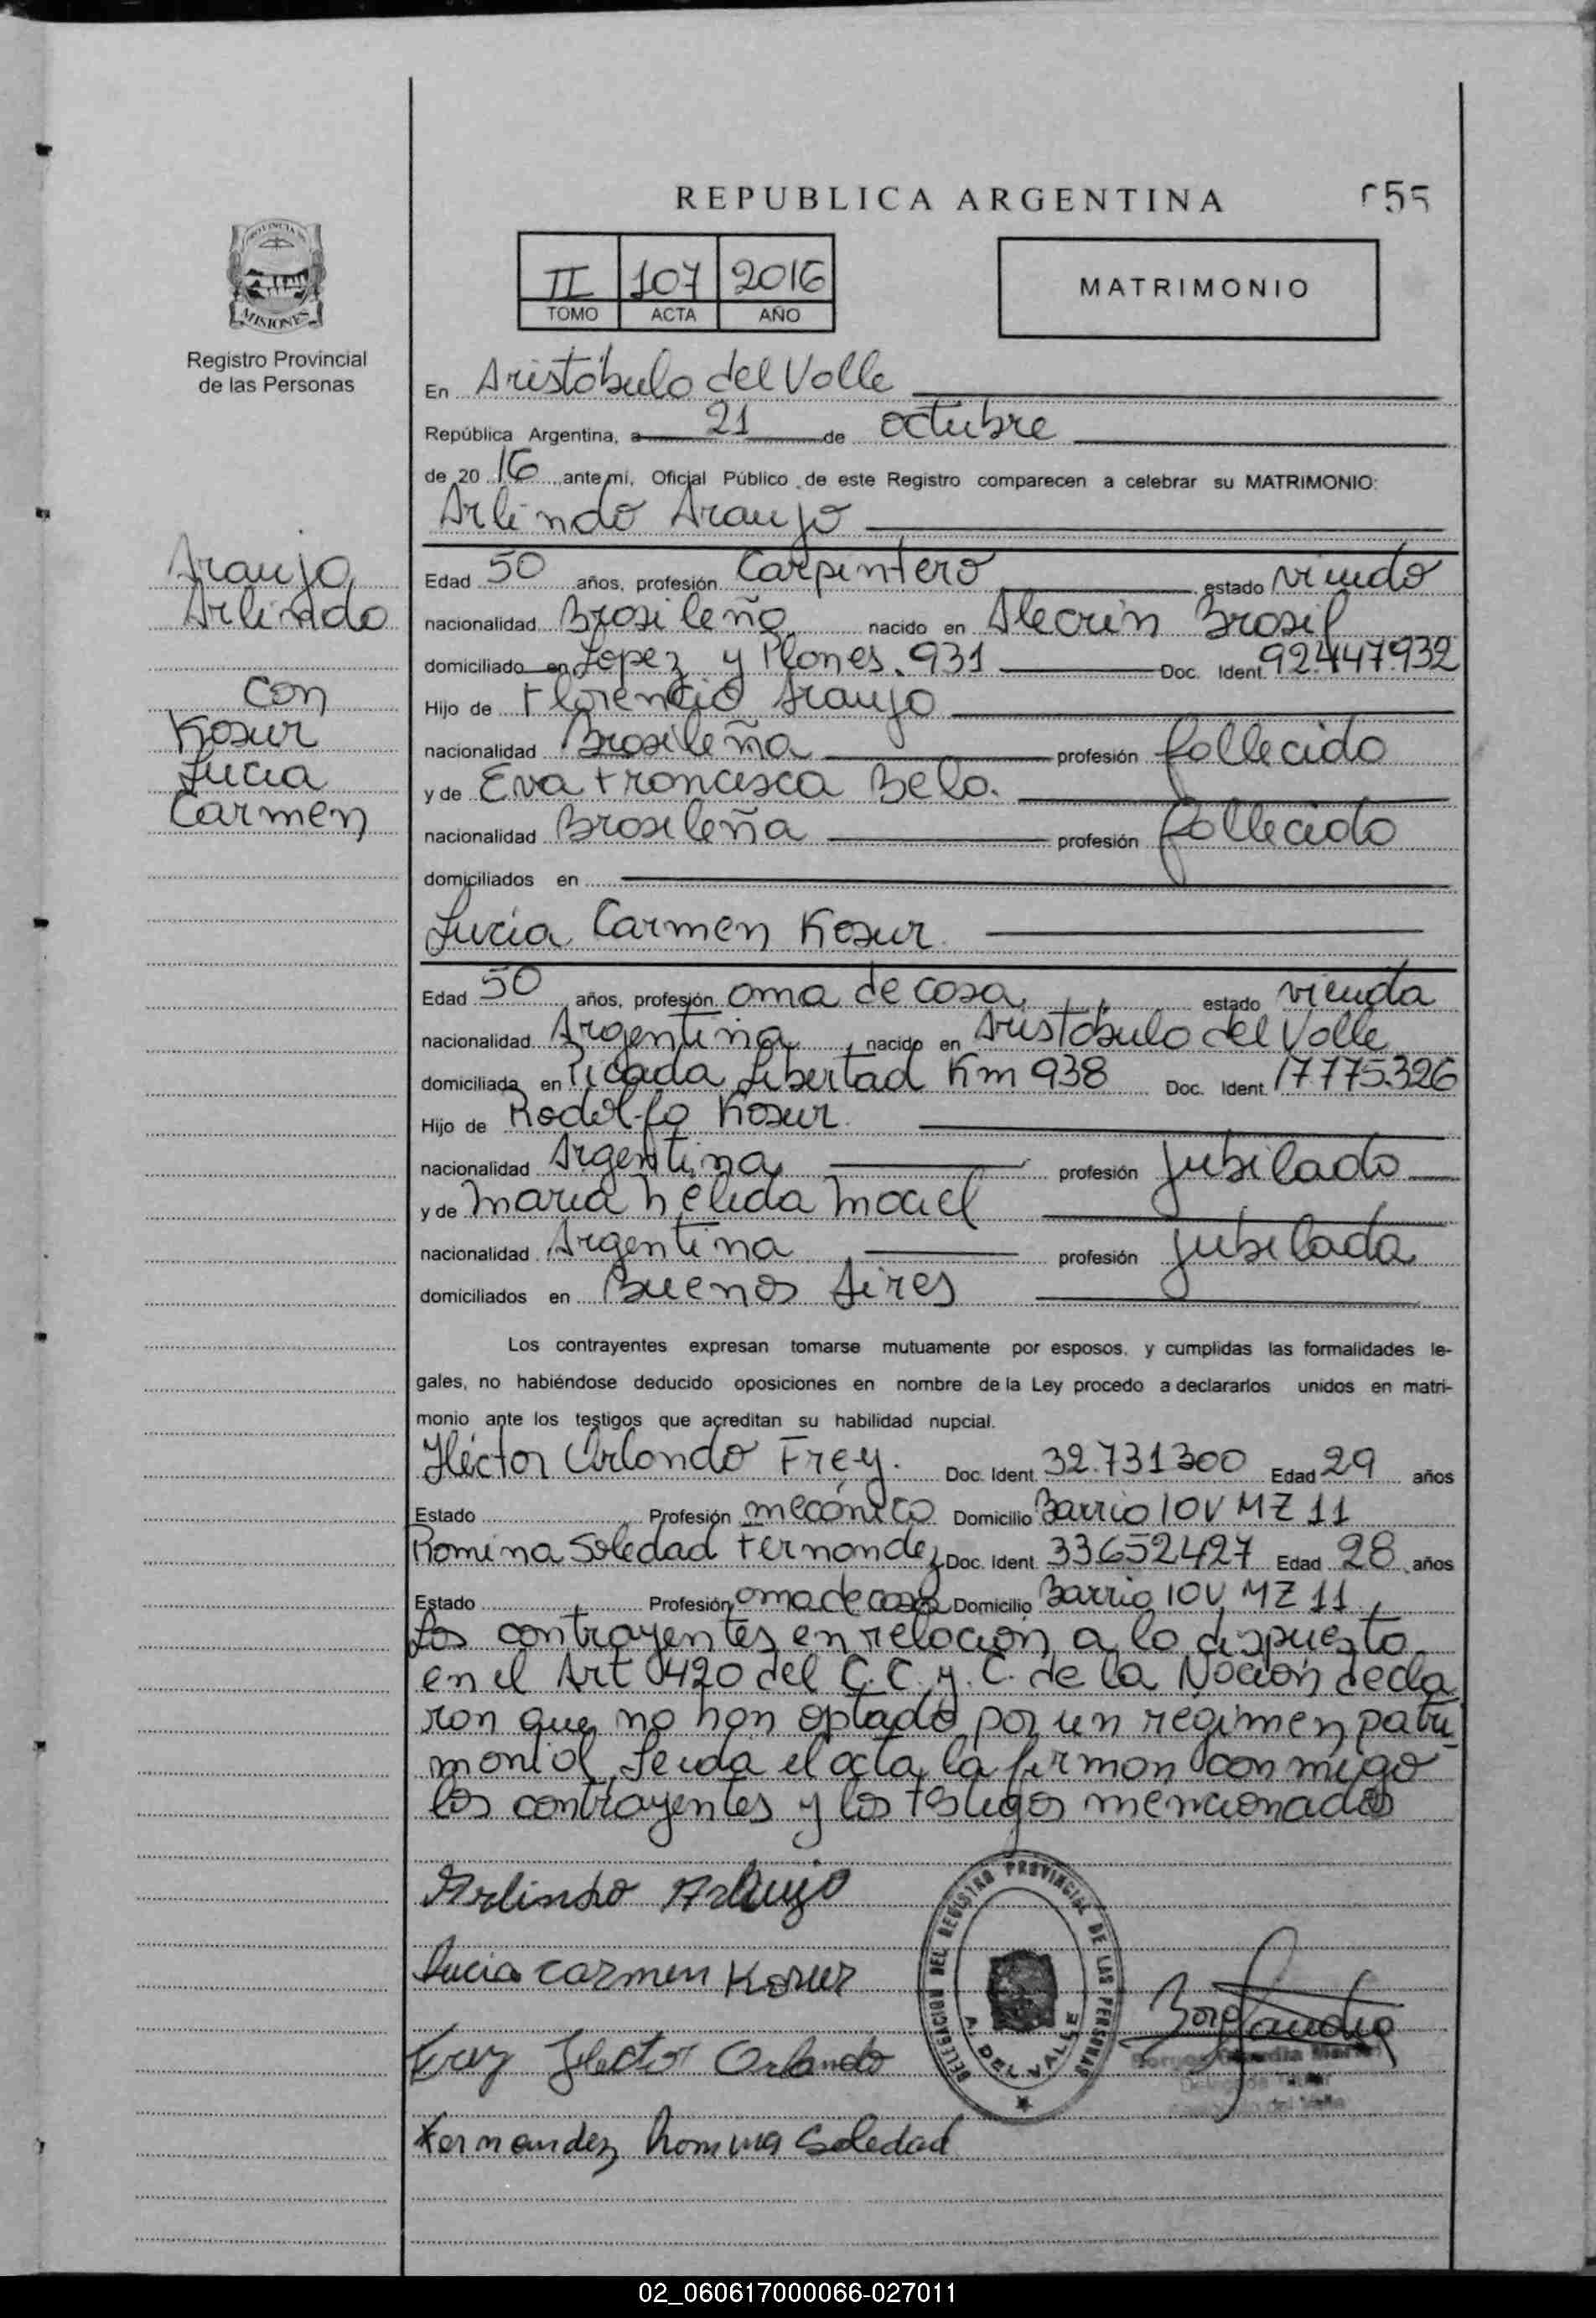 REPUBLICA ARGENTINA
055
PROVINCIA DE
MISIONES
Registro Provincial
de las Personas
II 107 2016
TOMO ACTA AÑO
MATRIMONIO
En Aristóbulo del Valle
República Argentina, a 21 de octubre
de 20 16 ante mi, Oficial Público de este Registro comparecen a celebrar su MATRIMONIO:
Arlindo Araujo
Araujo
Arlindo
con
Kosur
Lucia
Carmen
Edad 50 años, profesión Carpintero estado viudo
nacionalidad Brasileña nacido en Alecrin Brasil
domiciliado en Lopez y Planes 931 Doc. Ident. 92.447.932
Hijo de Florencio Araujo
nacionalidad Brasileña profesión fallecido
y de Eva Francisca Belo.
nacionalidad Brasileña profesión fallecida
domiciliados en
Lucia Carmen Kosur
Edad 50 años, profesión ama de casa estado viuda
nacionalidad Argentina nacido en Aristóbulo del Valle
domiciliada en Picada Libertad Km 938 Doc. Ident. 17.775.326
Hijo de Rodolfo Kosur
nacionalidad Argentina profesión Jubilado
y de Maria Nélida Maciel
nacionalidad Argentina profesión Jubilada
domiciliados en Buenos Aires
Los contrayentes expresan tomarse mutuamente por esposos, y cumplidas las formalidades le-
gales, no habiéndose deducido oposiciones en nombre de la Ley procedo a declararlos unidos en matri-
monio ante los testigos que acreditan su habilidad nupcial.
Héctor Orlando Frey. Doc. Ident. 32.731300 Edad 29 años
Estado Profesión mecánico Domicilio Barrio IOV MZ 11
Romina Soledad Fernandez Doc. Ident. 33652427 Edad 28 años
Estado Profesión ama de casa Domicilio Barrio IOV MZ 11
Los contrayentes en relación a lo dispuesto
en el Art 420 del C.C. y. C. de la Nación decla
ran que no han optado por un régimen patri
monial, Leida el acta la firman con migo
los contrayentes y los testigos mencionados
Arlindo Araujo
Lucia carmen Kosur
Frey Hector Orlando
Fernandez Romina Soledad
DELEGACION DEL REGISTRO PROVINCIAL DE LAS PERSONAS
A. DEL VALLE
02_060617000066-027011